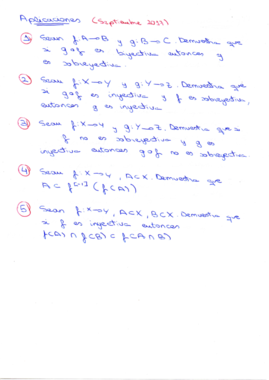 Aplicaciones (Septiembre 2017)
① Sean f: A→B y g: B→C. Demuestra que
si g∘f es biyectiva entonces g
es sobreyectiva.
② Sean f: X→Y y g: Y→Z. Demuestra que
si g∘f es inyectiva y f es sobreyectiva,
entonces g es inyectiva.
③ Sean f: X→Y y g: Y→Z. Demuestra que si
f no es sobreyectiva y g es
inyectiva entonces g∘f no es sobreyectiva
④ Sean f: X→Y, A⊂X. Demuestra que
A ⊂ f⁽⁻¹⁾(f(A))
⑤ Sean f: X→Y, A⊂X, B⊂X. Demuestra que
si f es inyectiva entonces
f(A) ∩ f(B) ⊂ f(A∩B)